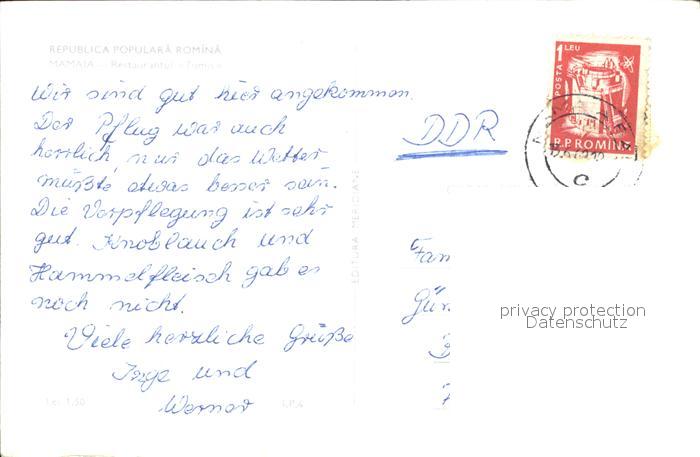 REPUBLICA POPULARĂ ROMÎNĂ
MAMAIA — Restaurantul «Tomis»
Wir sind gut hier angekommen.
Der Pflug war auch
herrlich, nur das Wetter
müßte etwas besser sein.
Die Verpflegung ist sehr
gut. Knoblauch und
Hammelfleisch gab es
noch nicht.
Viele herzliche Grüße
Inge und
Werner
Lei 1,50
I.P.4
EDITURA MERIDIANE
DDR
POSTA 1 LEU
R.P.ROMINA
C
Fam
privacy protection
Datenschutz